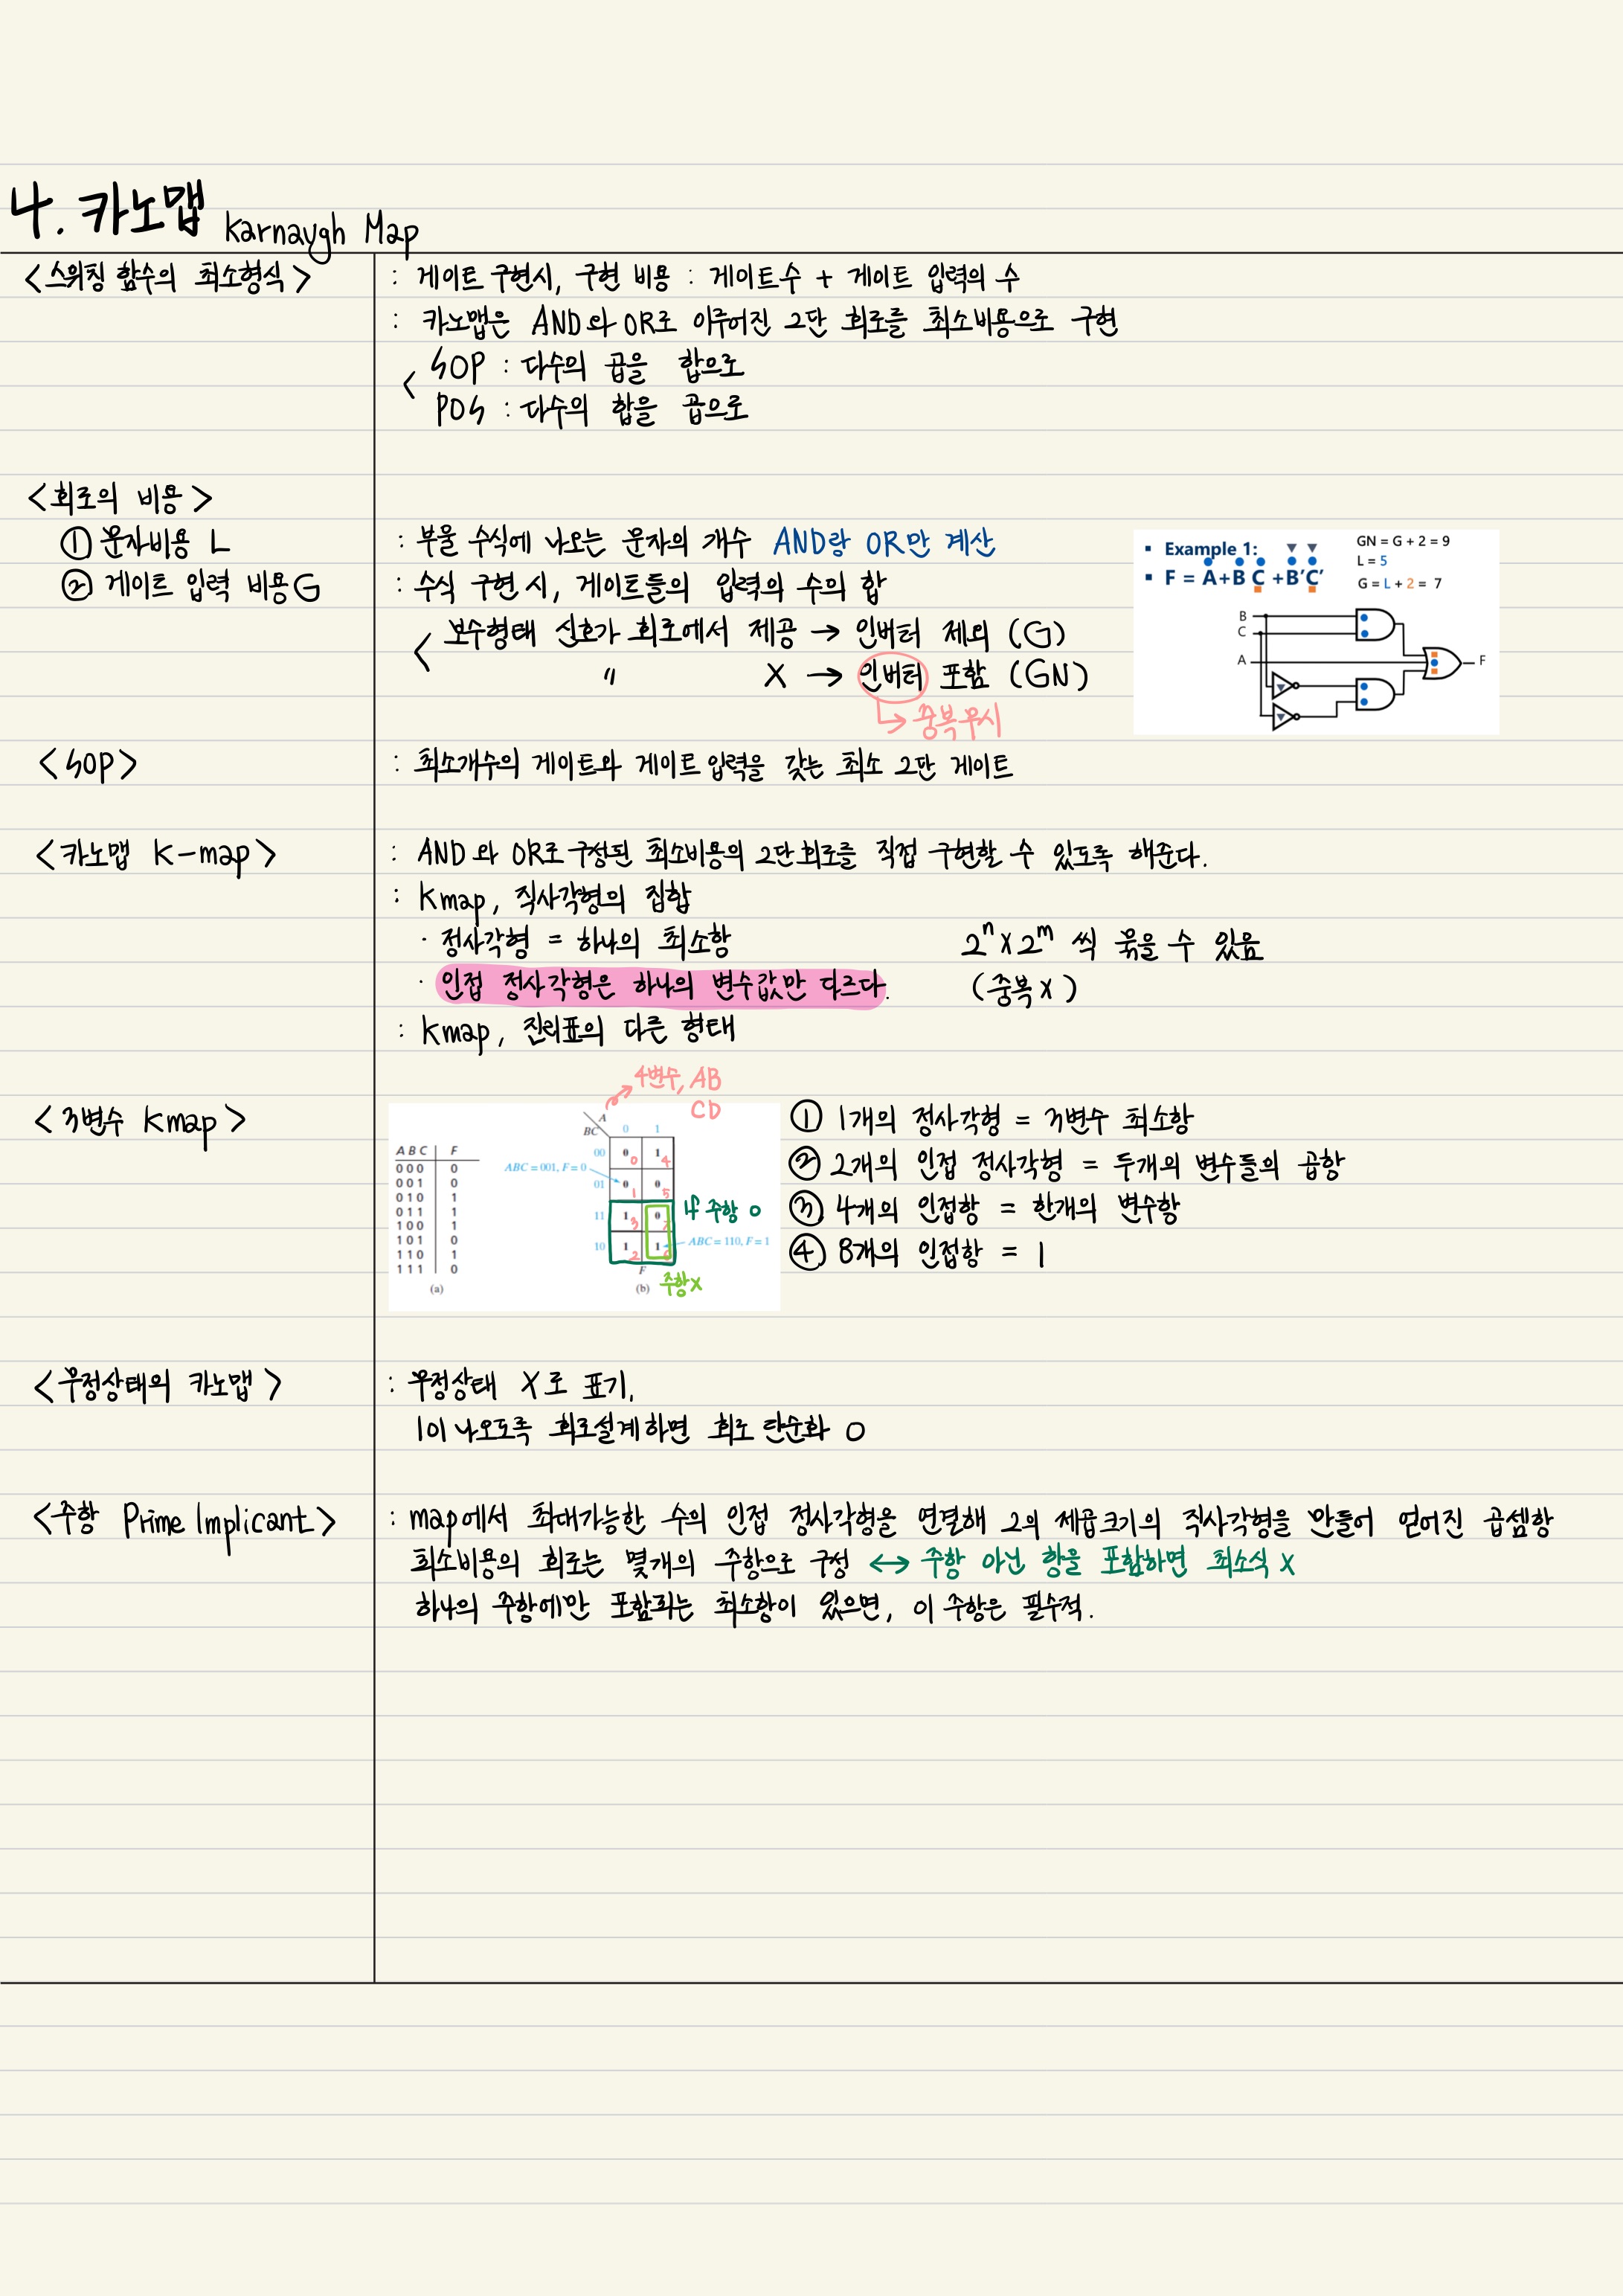 4. 카노맵 Karnaugh Map
<스위칭 함수의 최소형식> : 게이트 구현시, 구현 비용 : 게이트수 + 게이트 입력의 수
: 카노맵은 AND와 OR로 이루어진 2단 회로를 최소비용으로 구현
< SOP : 다수의 곱을 합으로
POS : 다수의 합을 곱으로
<회로의 비용>
① 문자비용 L : 부울 수식에 나오는 문자의 개수 AND랑 OR만 계산
② 게이트 입력 비용G : 수식 구현 시, 게이트들의 입력의 수의 합
< 보수형태 신호가 회로에서 제공 → 인버터 제외 (G)
〃 X → 인버터 포함 (GN)
↳ 중복무시
▪ Example 1:
▪ F = A+B C +B'C'
GN = G + 2 = 9
L = 5
G = L + 2 = 7
B
C
A
F
<SOP> : 최소개수의 게이트와 게이트 입력을 갖는 최소 2단 게이트
<카노맵 K-map> : AND와 OR로 구성된 최소비용의 2단회로를 직접 구현할 수 있도록 해준다.
: Kmap, 직사각형의 집합
· 정사각형 = 하나의 최소항 2ⁿ X 2ᵐ 씩 묶을 수 있음
· 인접 정사각형은 하나의 변수값만 다르다. (중복X)
: Kmap, 진리표의 다른 형태
<3변수 Kmap>
→ 4변수, AB
CD
A B C F
0 0 0 0
0 0 1 0
0 1 0 1
0 1 1 1
1 0 0 1
1 0 1 0
1 1 0 1
1 1 1 0
(a)
A
BC 0 1
00 0 0 1 4
ABC = 001, F = 0
01 0 1 0 5
11 1 3 0 7 if 주항 O
10 1 2 1 6 ABC = 110, F = 1
F 주항X
(b)
① 1개의 정사각형 = 3변수 최소항
② 2개의 인접 정사각형 = 두개의 변수들의 곱항
③ 4개의 인접항 = 한개의 변수항
④ 8개의 인접항 = 1
<무정상태의 카노맵> : 무정상태 X로 표기,
1이 나오도록 회로설계하면 회로 단순화 O
<주항 Prime Implicant> : map에서 최대가능한 수의 인접 정사각형을 연결해 2의 제곱크기의 직사각형을 만들어 얻어진 곱셈항
최소비용의 회로는 몇개의 주항으로 구성 ↔ 주항 아닌 항을 포함하면 최소식 X
하나의 주항에만 포함되는 최소항이 있으면, 이 주항은 필수적.